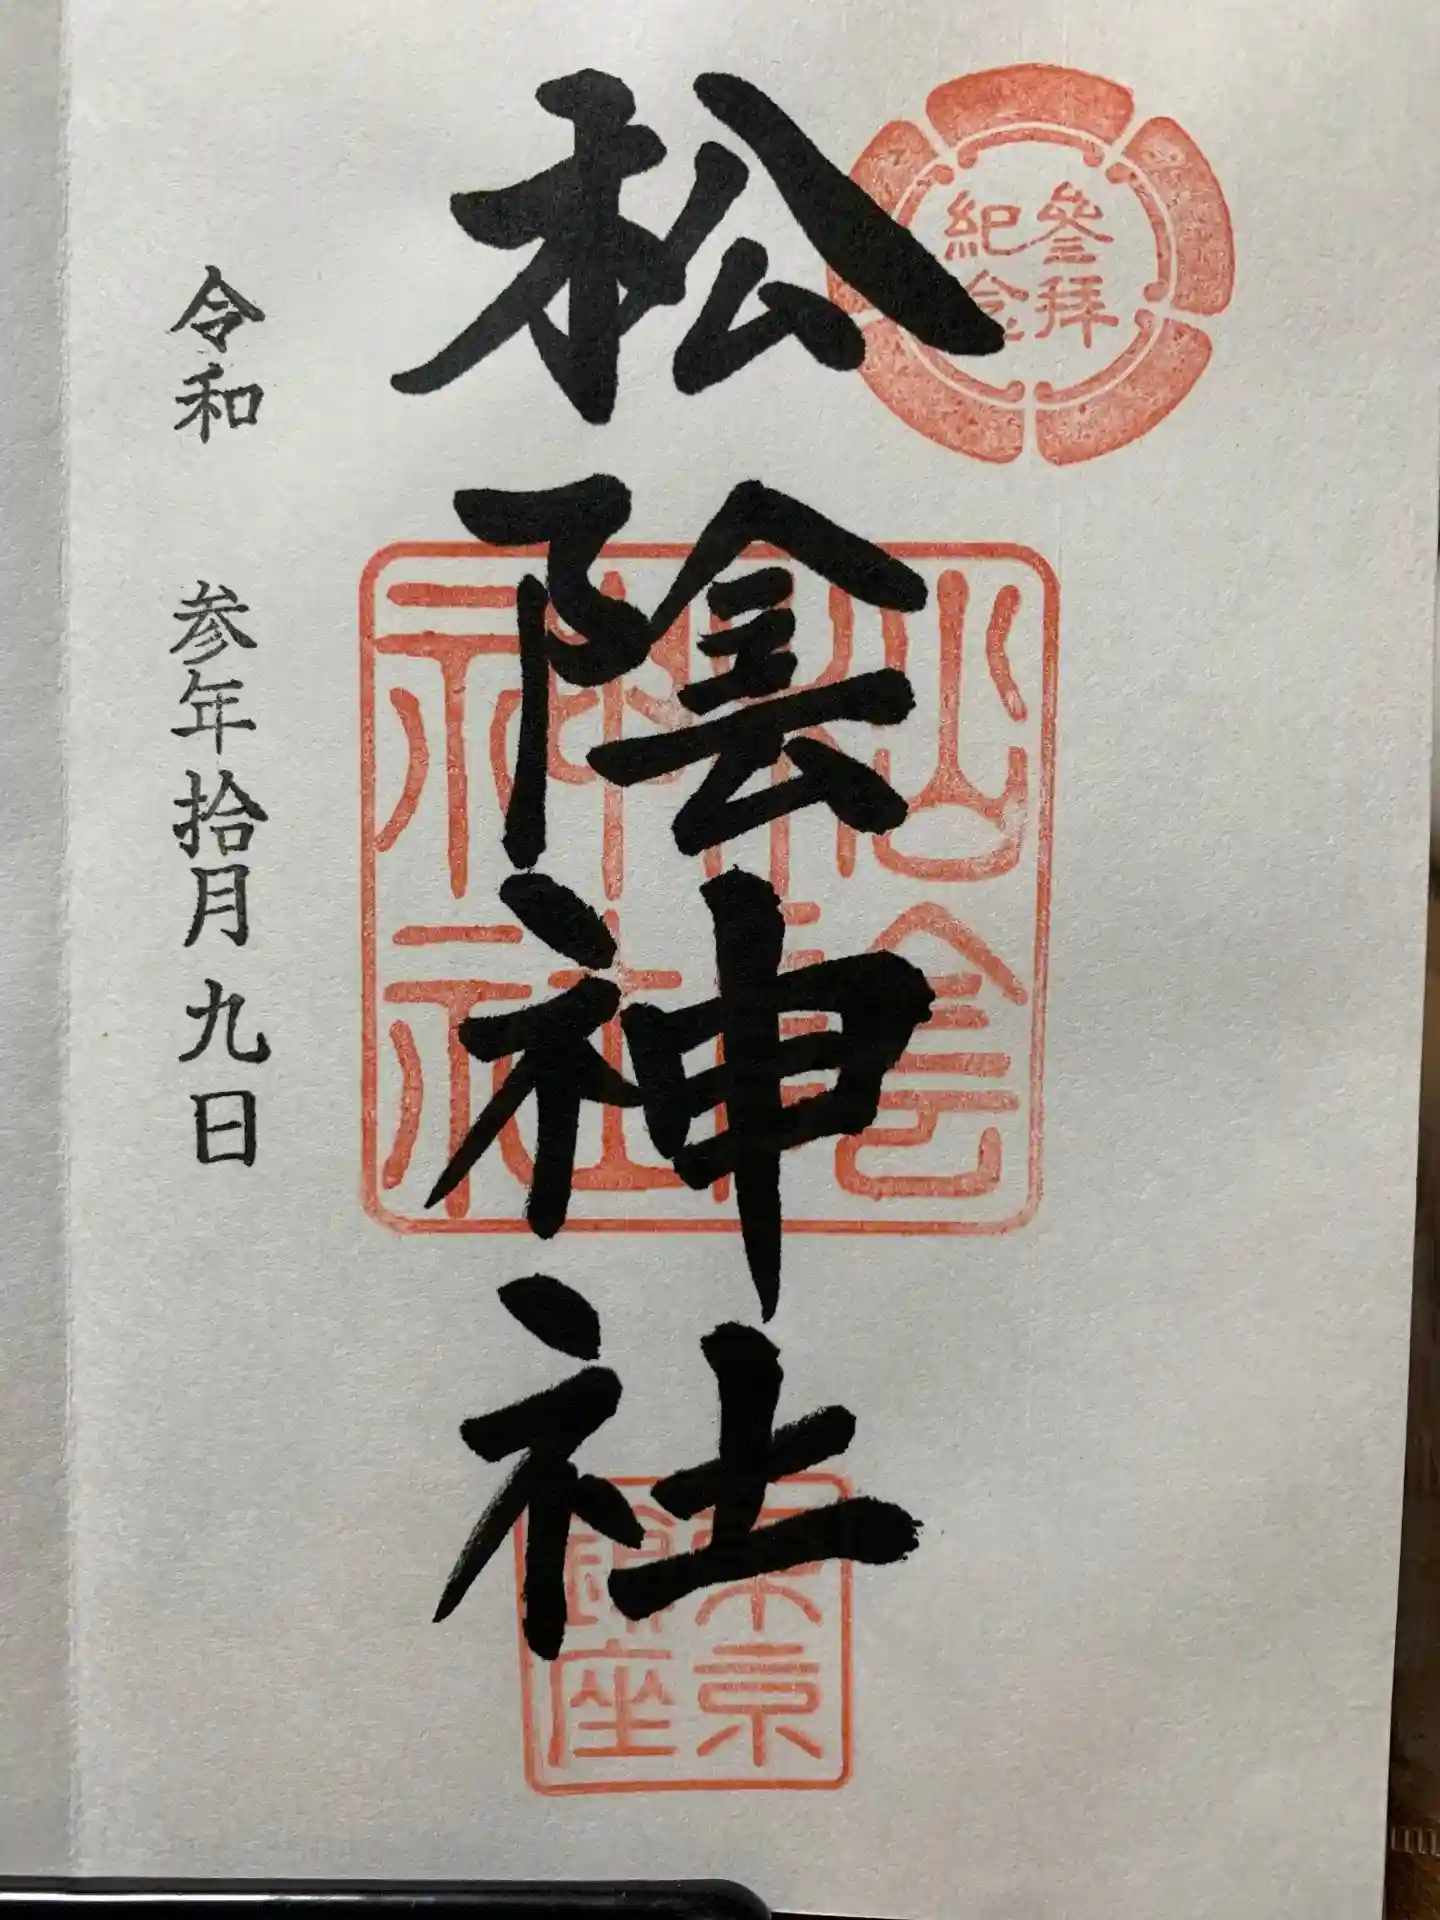 参拜
紀念
松陰神社
松陰
神社
東京
銀座
令和 参年拾月九日